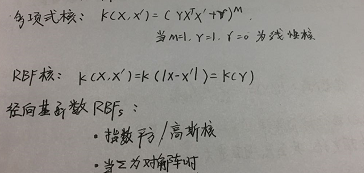 多项式核： K(X, X') = (γX^T X' + r)^M .
当M=1, γ=1. r=0 为线性核
RBF核： K(X, X') = K(|X-X'|) = K(r)
径向基函数 RBFs :
• 指数平方/高斯核
• 当Σ为对角阵时